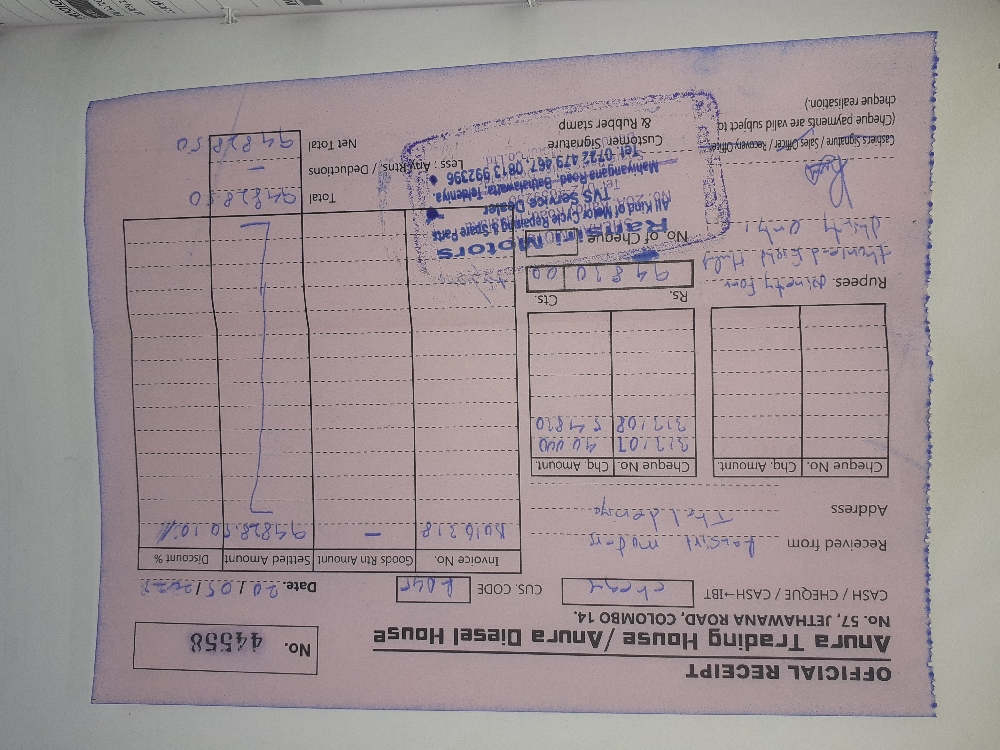 OFFICIAL RECEIPT
Anura Trading House / Anura Diesel House
No. 57, JETHAWANA ROAD, COLOMBO 14.
No. 44558
CASH / CHEQUE / CASH→IBT
CUS. CODE
Date. 20/05/2022
Received from Ransiri motors
Address Theldeniya
Cheque No. Chq. Amount Cheque No. Chq. Amount
317107 40 000
317108 54830
Invoice No. Goods Rtn Amount Settled Amount Discount %
B016318 — 94828.50 10%
Rs. Cts.
94830 00
Rupees. Ninety four
thousand Eight Hund
thirty only
No of Cheque
Total 94828.50
Less : Any Rtns. / Deductions —
Net Total 94828.50
Ransiri Motors
All Kind of Motor Cycle Repairing & Spare Parts
TVS Service Dealer
Mahiyangana Road, Bathalawatta, Teldeniya.
Tel: 0722 479 467, 0813 992396
Customer Signature
& Rubber stamp
Cashier's Signature / Sales Officer / Recovery Officer
(Cheque payments are valid subject to
cheque realisation.)